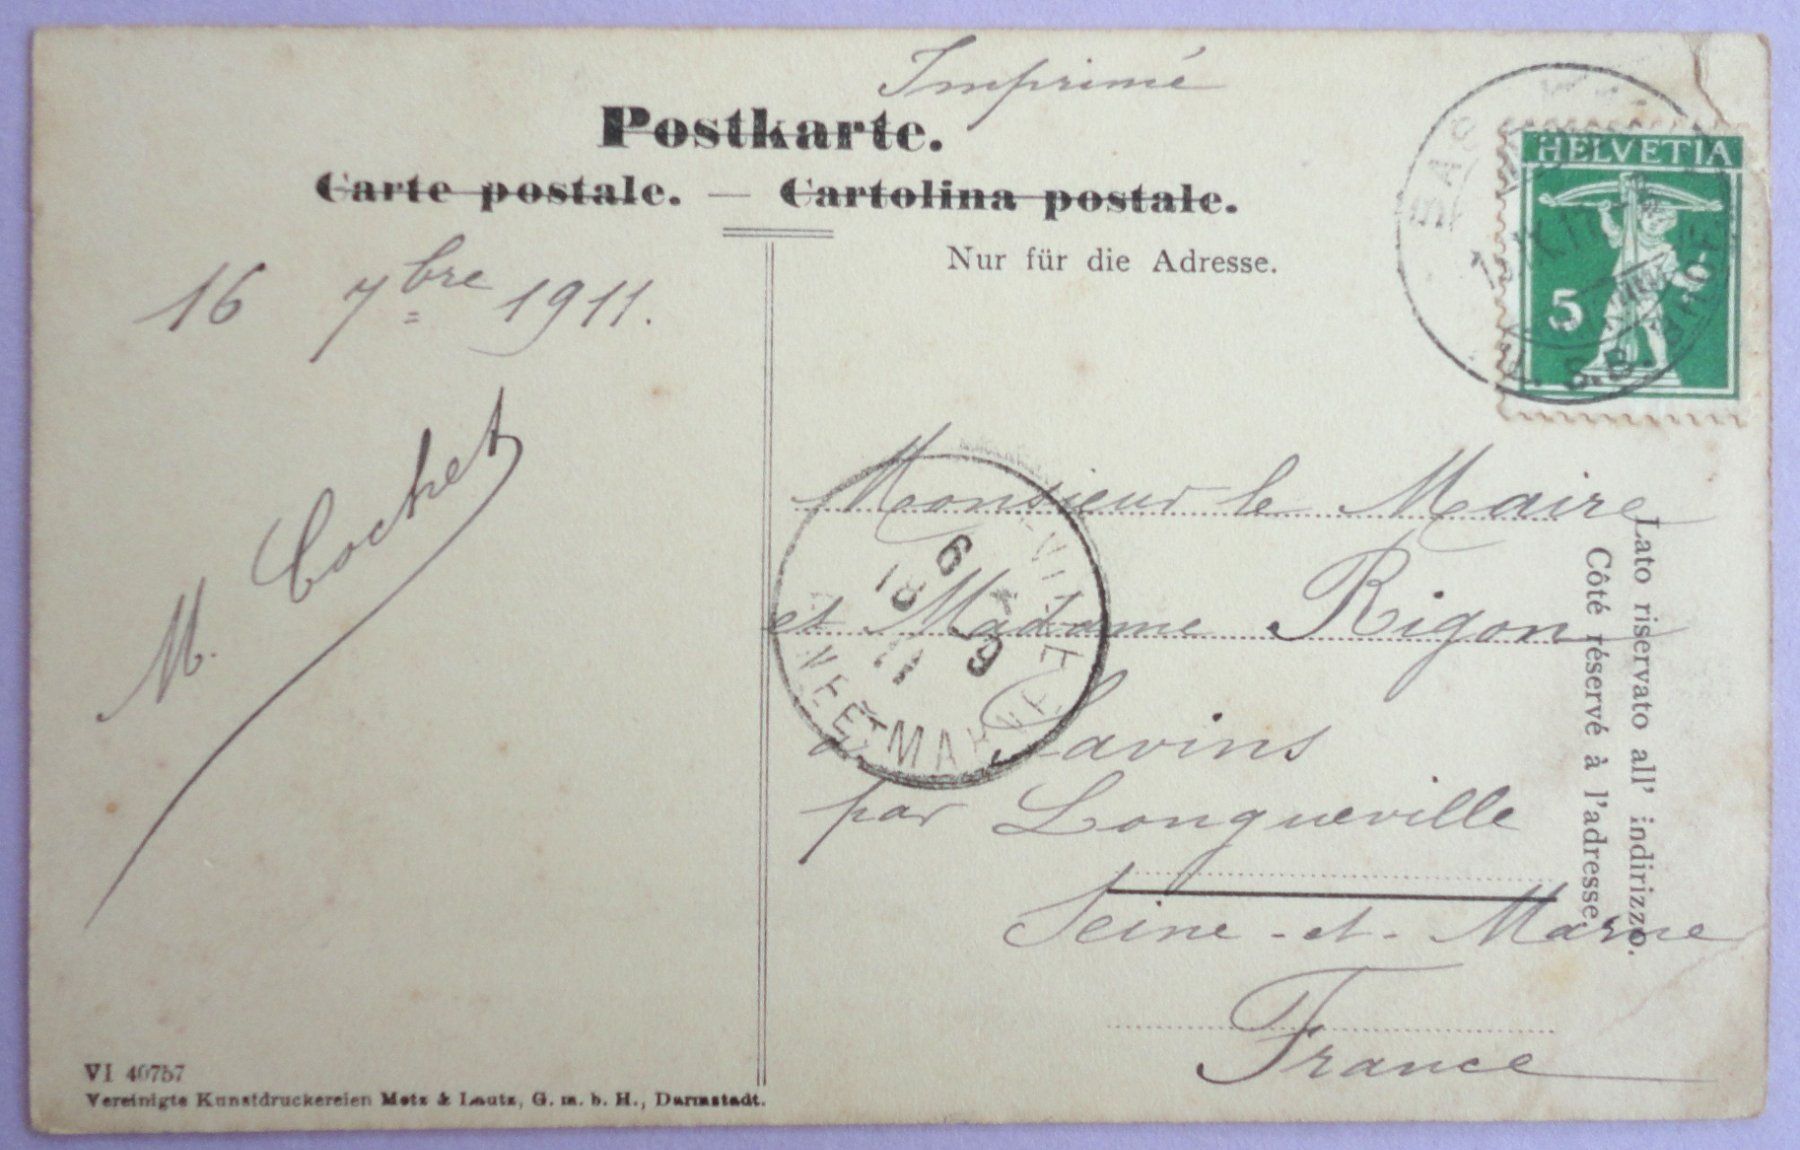 Imprimé
Postkarte.
Carte postale. — Cartolina postale.
Nur für die Adresse.
HELVETIA
5
16 7bre 1911.
M. Cochet
Monsieur le Maire
et Madame Rigon
à Savins
par Longueville
Seine-et-Marne
France
Lato riservato all' indirizzo.
Côté réservé à l'adresse.
6
18 9
11
VI 40757
Vereinigte Kunstdruckereien Metz & Lautz, G. m. b. H., Darmstadt.